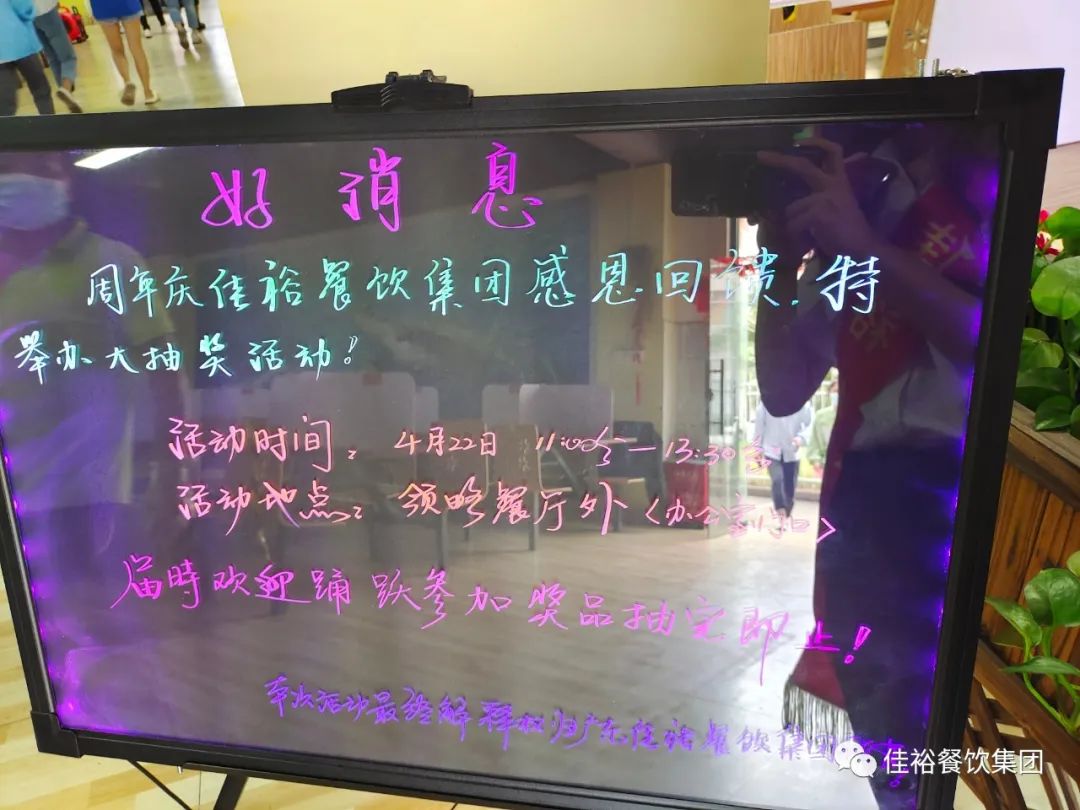 好消息
周年庆佳裕餐饮集团感恩回馈.特
举办大抽奖活动!
活动时间: 4月22日 11:00分—13:30分
活动地点: 领略餐厅外(办公室门口)
届時欢迎踊跃参加奖品抽完即止!
本次活动最终解释权归广东佳裕餐饮集团
佳裕餐饮集团